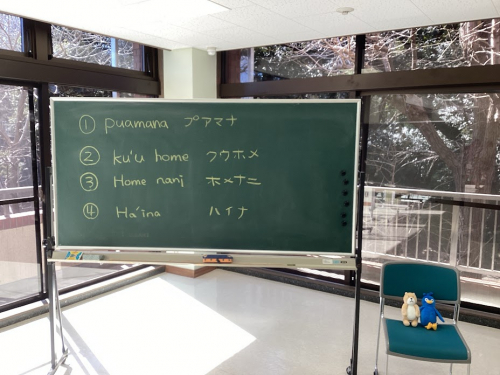 ① puamana プアマナ
② ku'u home クウホメ
③ Home nani ホメナニ
④ Ha'ina ハイナ